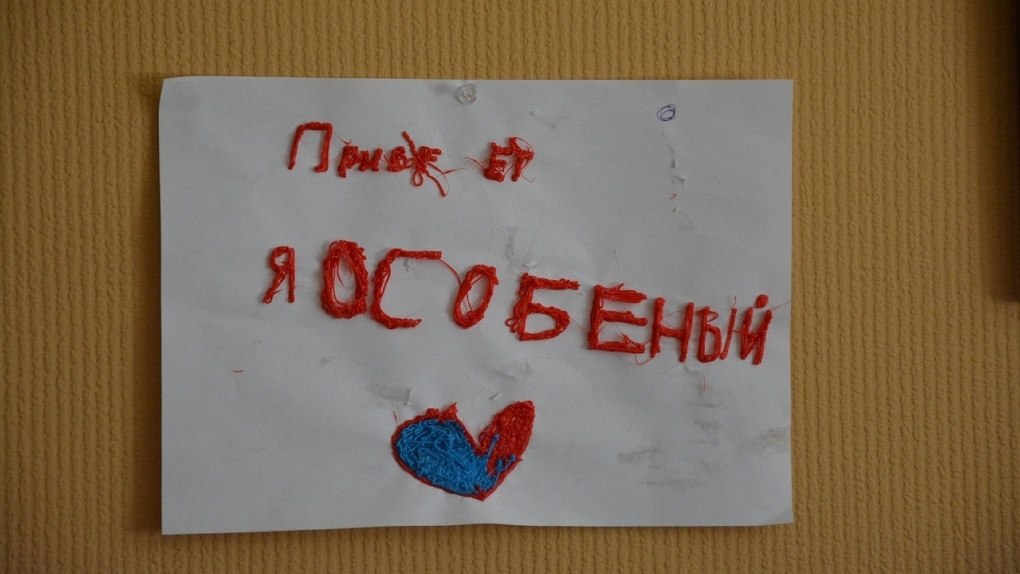 Приве ет
я ОСОБЕНЫЙ